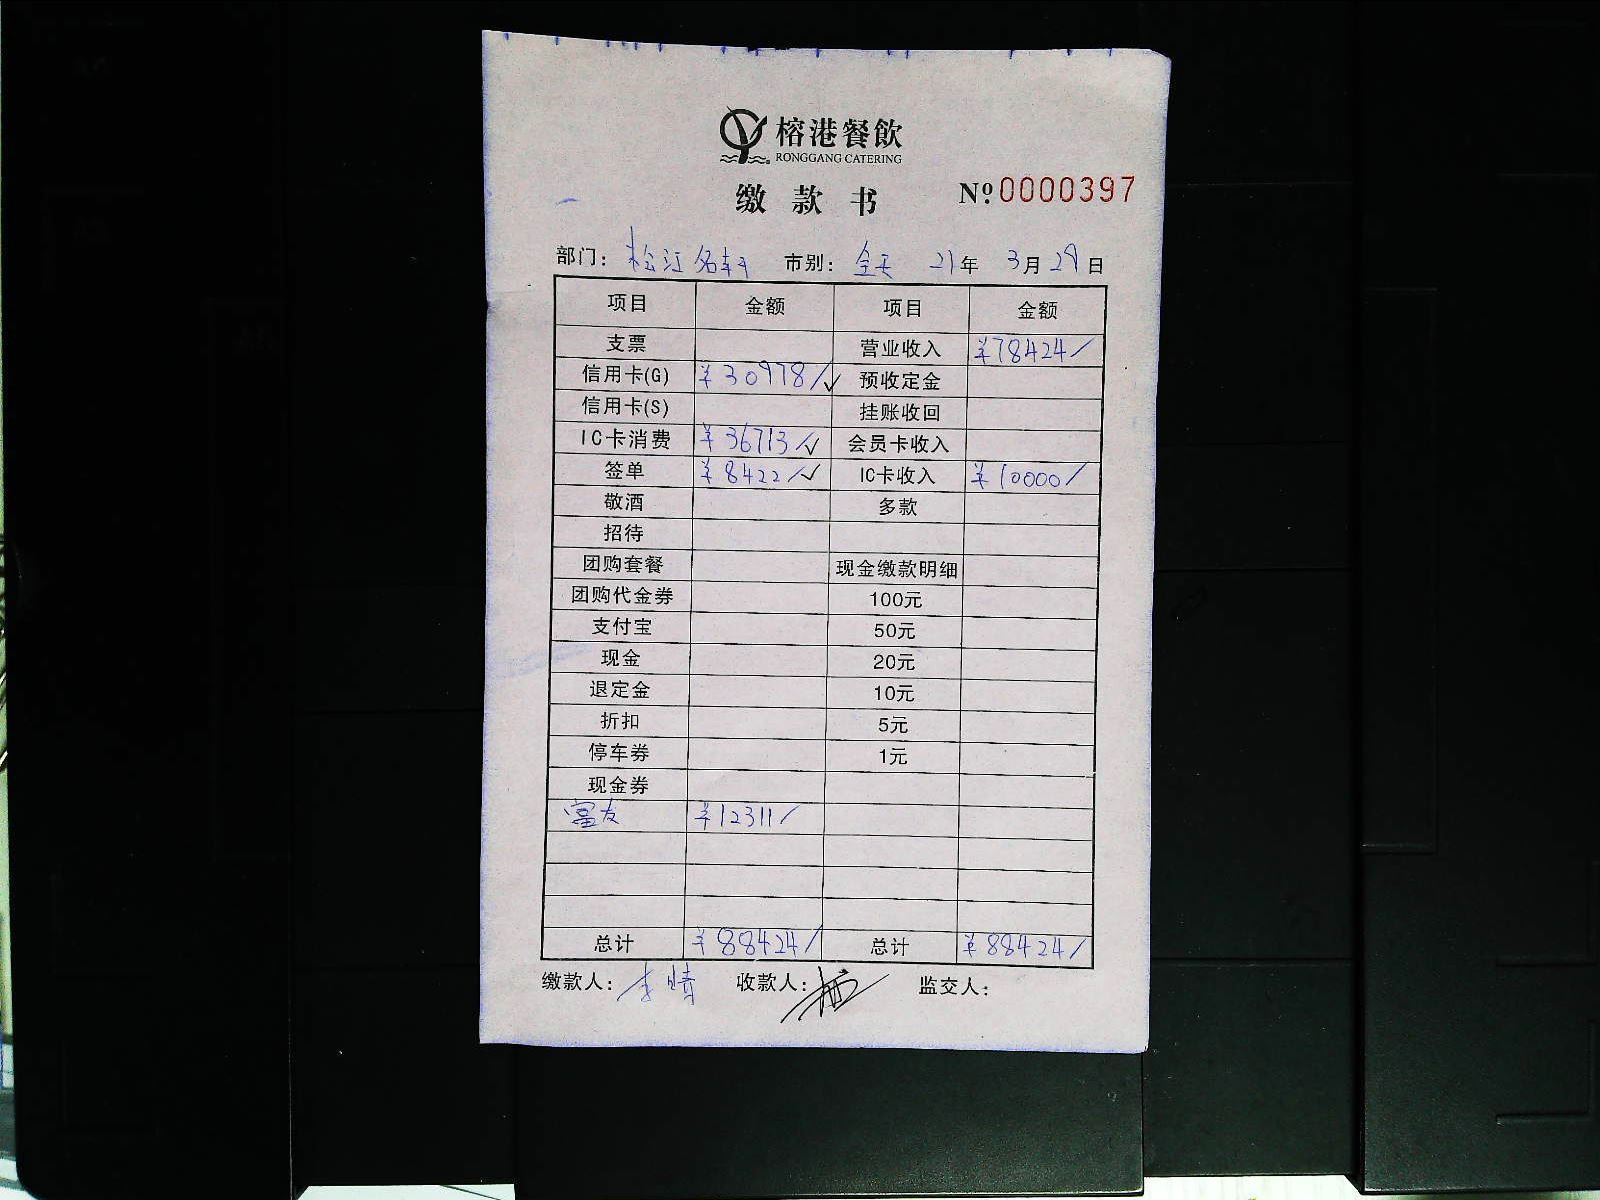 榕港餐飲
RONGGANG CATERING
缴款书 №0000397
部门：松江名轩 市别：全天 21年3月29日
项目 金额 项目 金额
支票 营业收入 ¥78424/
信用卡(G) ¥30978/✓ 预收定金
信用卡(S) 挂账收回
IC卡消费 ¥36713/✓ 会员卡收入
签单 ¥8422/✓ IC卡收入 ¥10000/
敬酒 多款
招待
团购套餐 现金缴款明细
团购代金券 100元
支付宝 50元
现金 20元
退定金 10元
折扣 5元
停车券 1元
现金券
富友 ¥12311/
总计 ¥88424/ 总计 ¥88424/
缴款人：李晴 收款人： 监交人：